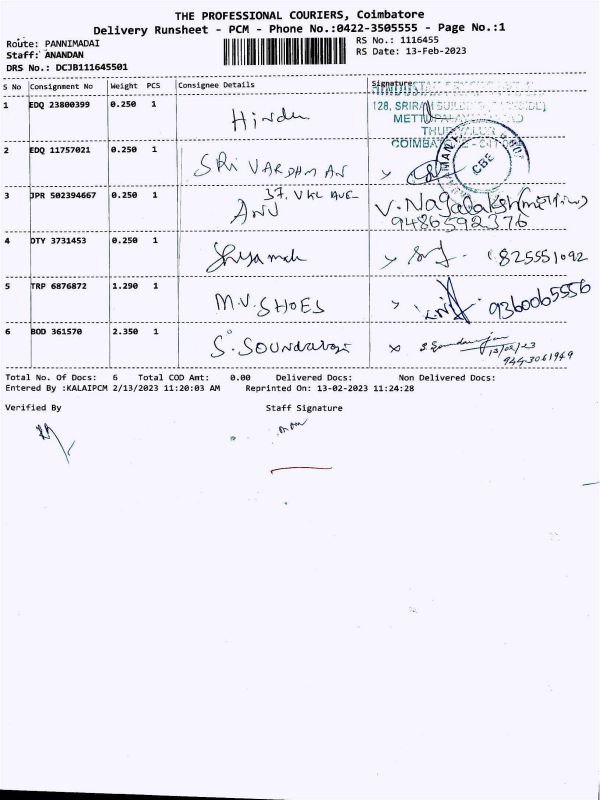 THE PROFESSIONAL COURIERS, Coimbatore
Delivery Runsheet - PCM - Phone No.:0422-3505555 - Page No.:1
Route: PANNIMADAI
RS No.: 1116455
Staff: ANANDAN
RS Date: 13-Feb-2023
DRS No.: DCJB111645501
S No Consignment No Weight PCS Consignee Details Signature
1 EDQ 23800399 0.250 1 Hindu
128, SRIRAM
2 EDQ 11757021 0.250 1 SRI VARDHMAN
COIMBATORE
CBE
3 JPR 502394667 0.250 1 ANU 37, VKL AVE V. Nagalakshmi
9486592376
4 DTY 3731453 0.250 1 Shyamala
5 TRP 6876872 1.290 1 M.V. SHOES 9360065556
6 BOD 361570 2.350 1 S. Soundaraj
13/02/23
Total No. Of Docs: 6 Total COD Amt: 0.00 Delivered Docs: Non Delivered Docs:
Entered By :KALAIPCM 2/13/2023 11:20:03 AM Reprinted On: 13-02-2023 11:24:28
Verified By Staff Signature